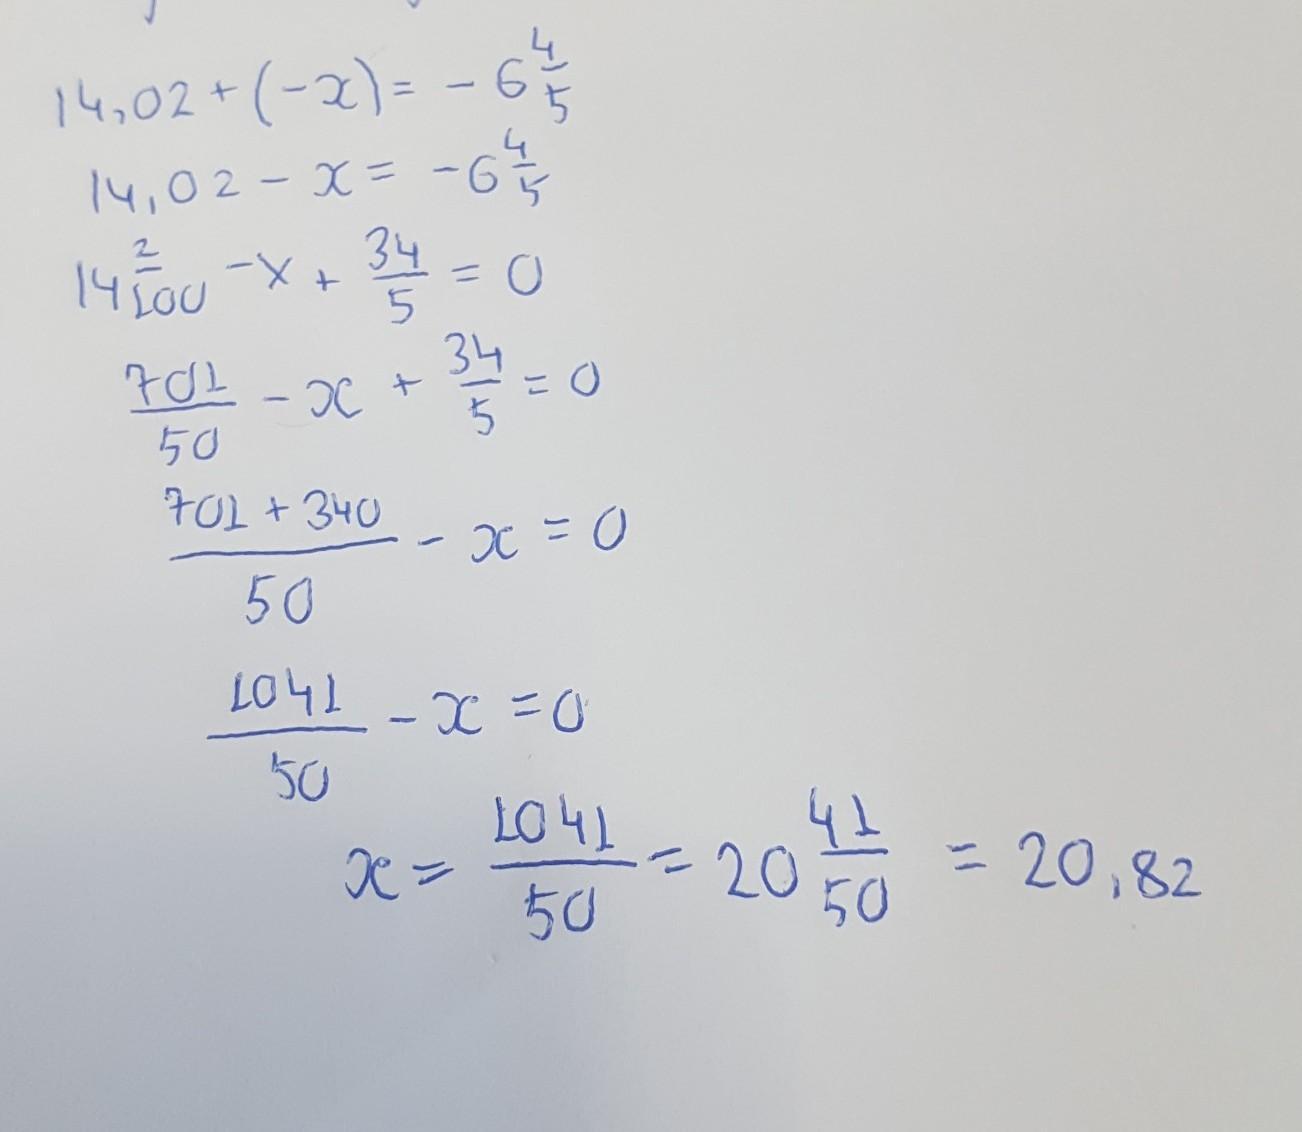 14,02 + (-x) = - 6 4/5
14,02 - x = -6 4/5
14 2/100 - x + 34/5 = 0
701/50 - x + 34/5 = 0
701 + 340/50 - x = 0
1041/50 - x = 0
x = 1041/50 = 20 41/50 = 20,82